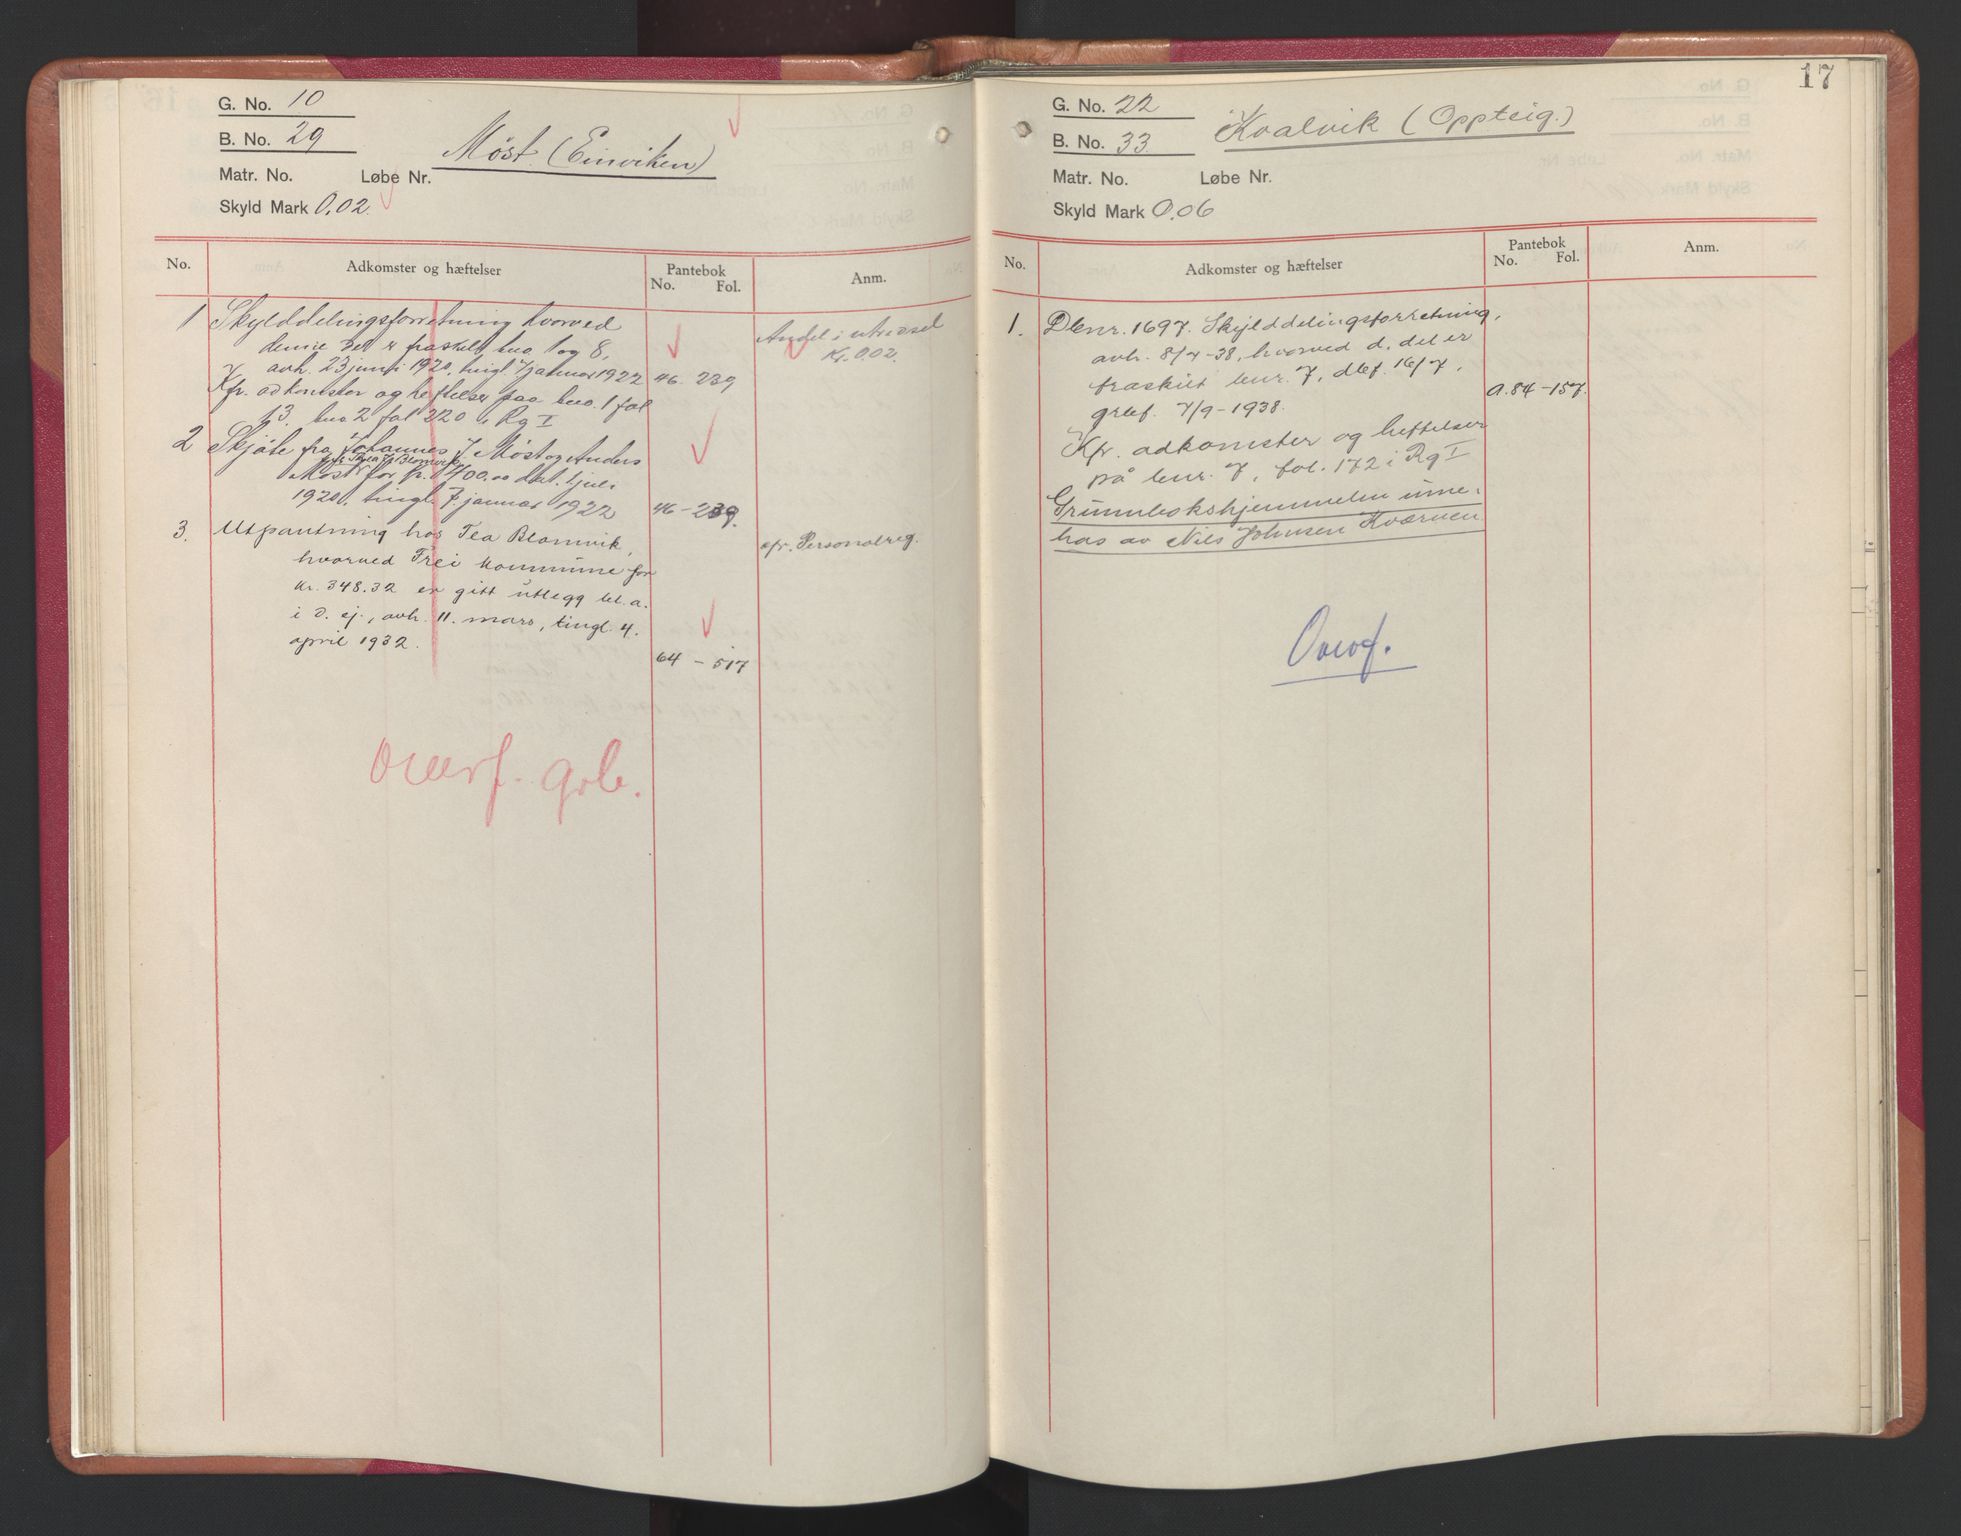 G. No. 10
B. No. 29
Møst (Einviken)
Matr. No. Løbe Nr.
Skyld Mark 0,02
No. Adkomster og hæftelser Pantebok No. Fol. Anm.
1 Skylddelingsforretning hvorved
denne del er fraskilt bno. 1 og 8,
avh. 23 juni 1920, tingl. 7/januar 1922 46. 239
Andel i utrissel
Kr. 0.02.
Kfr. adkomster og heftelser paa bno. 1 fol
13. bno 2 fol 220 i Rg I
2 Skjøte fra Johannes J. Møst og Anders
Møst til Thea J. Blomvik
for kr. 1400.00 dat. 1 juli
1920, tingl. 7. januar 1922 46 - 239.
3. Utpantning hos Tea Blomvik, cfr. Personalreg.
hvorved Frei kommune for
kr. 348.32 er gitt utlegg bl. a.
i d. ej., avh. 11. mars, tingl. 4.
april 1932. 64 - 517
Overf. grb.
17
G. No. 22
B. No. 33
Kvalvik (Oppteig.)
Matr. No. Løbe Nr.
Skyld Mark 0.06
No. Adkomster og hæftelser Pantebok No. Fol. Anm.
1. Dbnr. 1697. Skylddelingsforretning,
avh. 8/7-38, hvorved d. del er
fraskilt bnr. 7, dbf. 16/7,
grbf. 7/9-1938. a. 84 - 157.
Kfr. adkomster og heftelser
på bnr. 7, fol. 172 i Rg I
Grunnbokshjemmelen inne-
has av Nils Johnsen Kværnen
Overf.